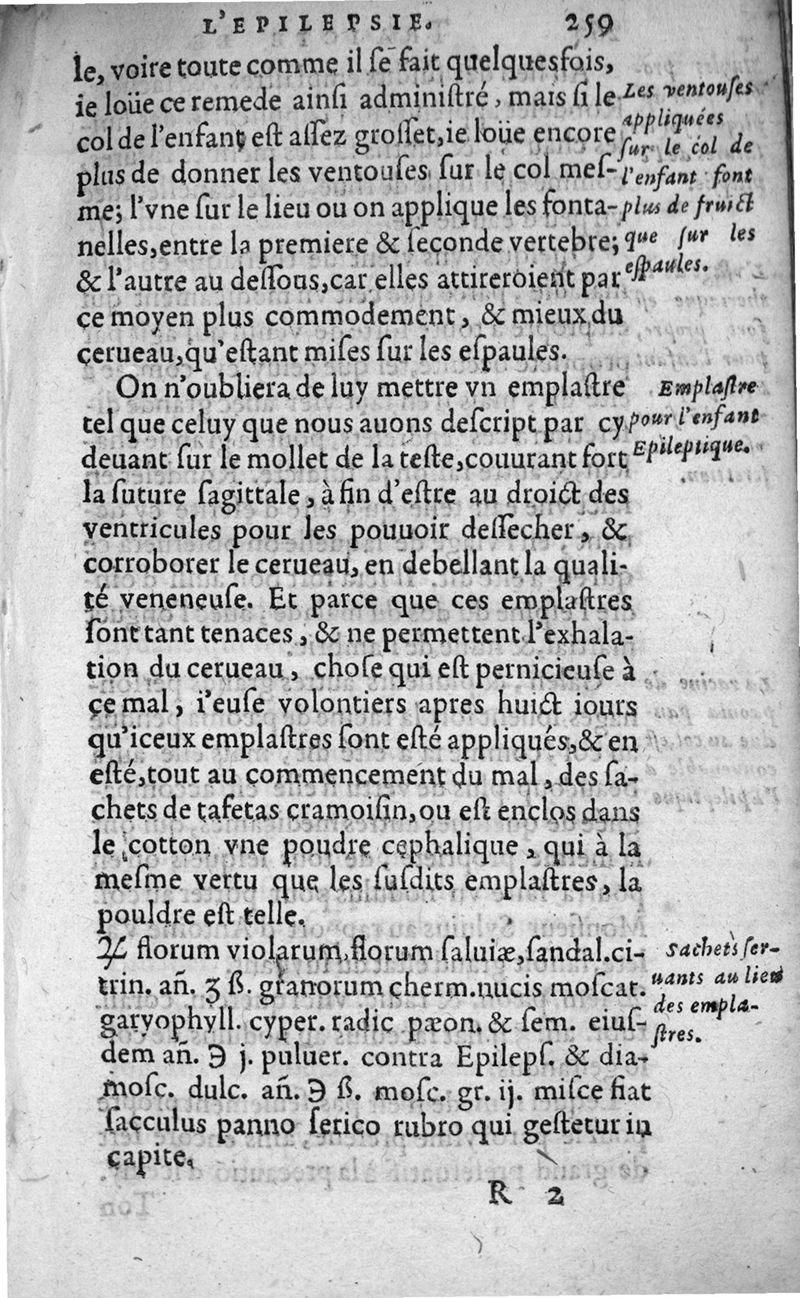 L'EPILEPSIE. 259
le, voire toute comme il ſe fait quelquesfois,
ie loüe ce remede ainſi adminiſtré, mais ſi le
col de l'enfant eſt aſſez groſſet, ie loüe encore
plus de donner les ventouſes ſur le col meſ-
me; l'vne ſur le lieu ou on applique les fonta-
nelles, entre la premiere & ſeconde vertebre;
& l'autre au deſſous, car elles attireroient par
ce moyen plus commodement, & mieux du
cerueau, qu'eſtant miſes ſur les eſpaules.
Les ventouſes
appliquées
ſur le col de
l'enfant font
plus de fruict
que ſur les
eſpaules.
On n'oubliera de luy mettre vn emplaſtre
tel que celuy que nous auons deſcript par cy
deuant ſur le mollet de la teſte, couurant fort
la ſuture ſagittale, à fin d'eſtre au droict des
ventricules pour les pouuoir deſſecher, &
corroborer le cerueau, en debellant la quali-
té veneneuſe. Et parce que ces emplaſtres
ſont tant tenaces, & ne permettent l'exhala-
tion du cerueau, choſe qui eſt pernicieuſe à
ce mal, i'euſe volontiers apres huict iours
qu'iceux emplaſtres ſont eſté appliqués, & en
eſté, tout au commencement du mal, des ſa-
chets de tafetas cramoiſin, ou eſt enclos dans
le cotton vne poudre cephalique, qui à la
meſme vertu que les ſuſdits emplaſtres, la
pouldre eſt telle.
Emplaſtre
pour l'enfant
Epileptique.
℞ florum violarum, florum ſaluiæ, ſandal. ci-
trin. añ. ʒ ß. granorum cherm. nucis moſcat.
garyophyll. cyper. radic pæon. & ſem. eiuſ-
dem añ. ℈ j. puluer. contra Epilepſ. & dia-
moſc. dulc. añ. ℈ ß. moſc. gr. ij. miſce fiat
ſacculus panno ſerico rubro qui geſtetur in
capite.
Sachets ſer-
uants au lieu
des empla-
ſtres.
R 2